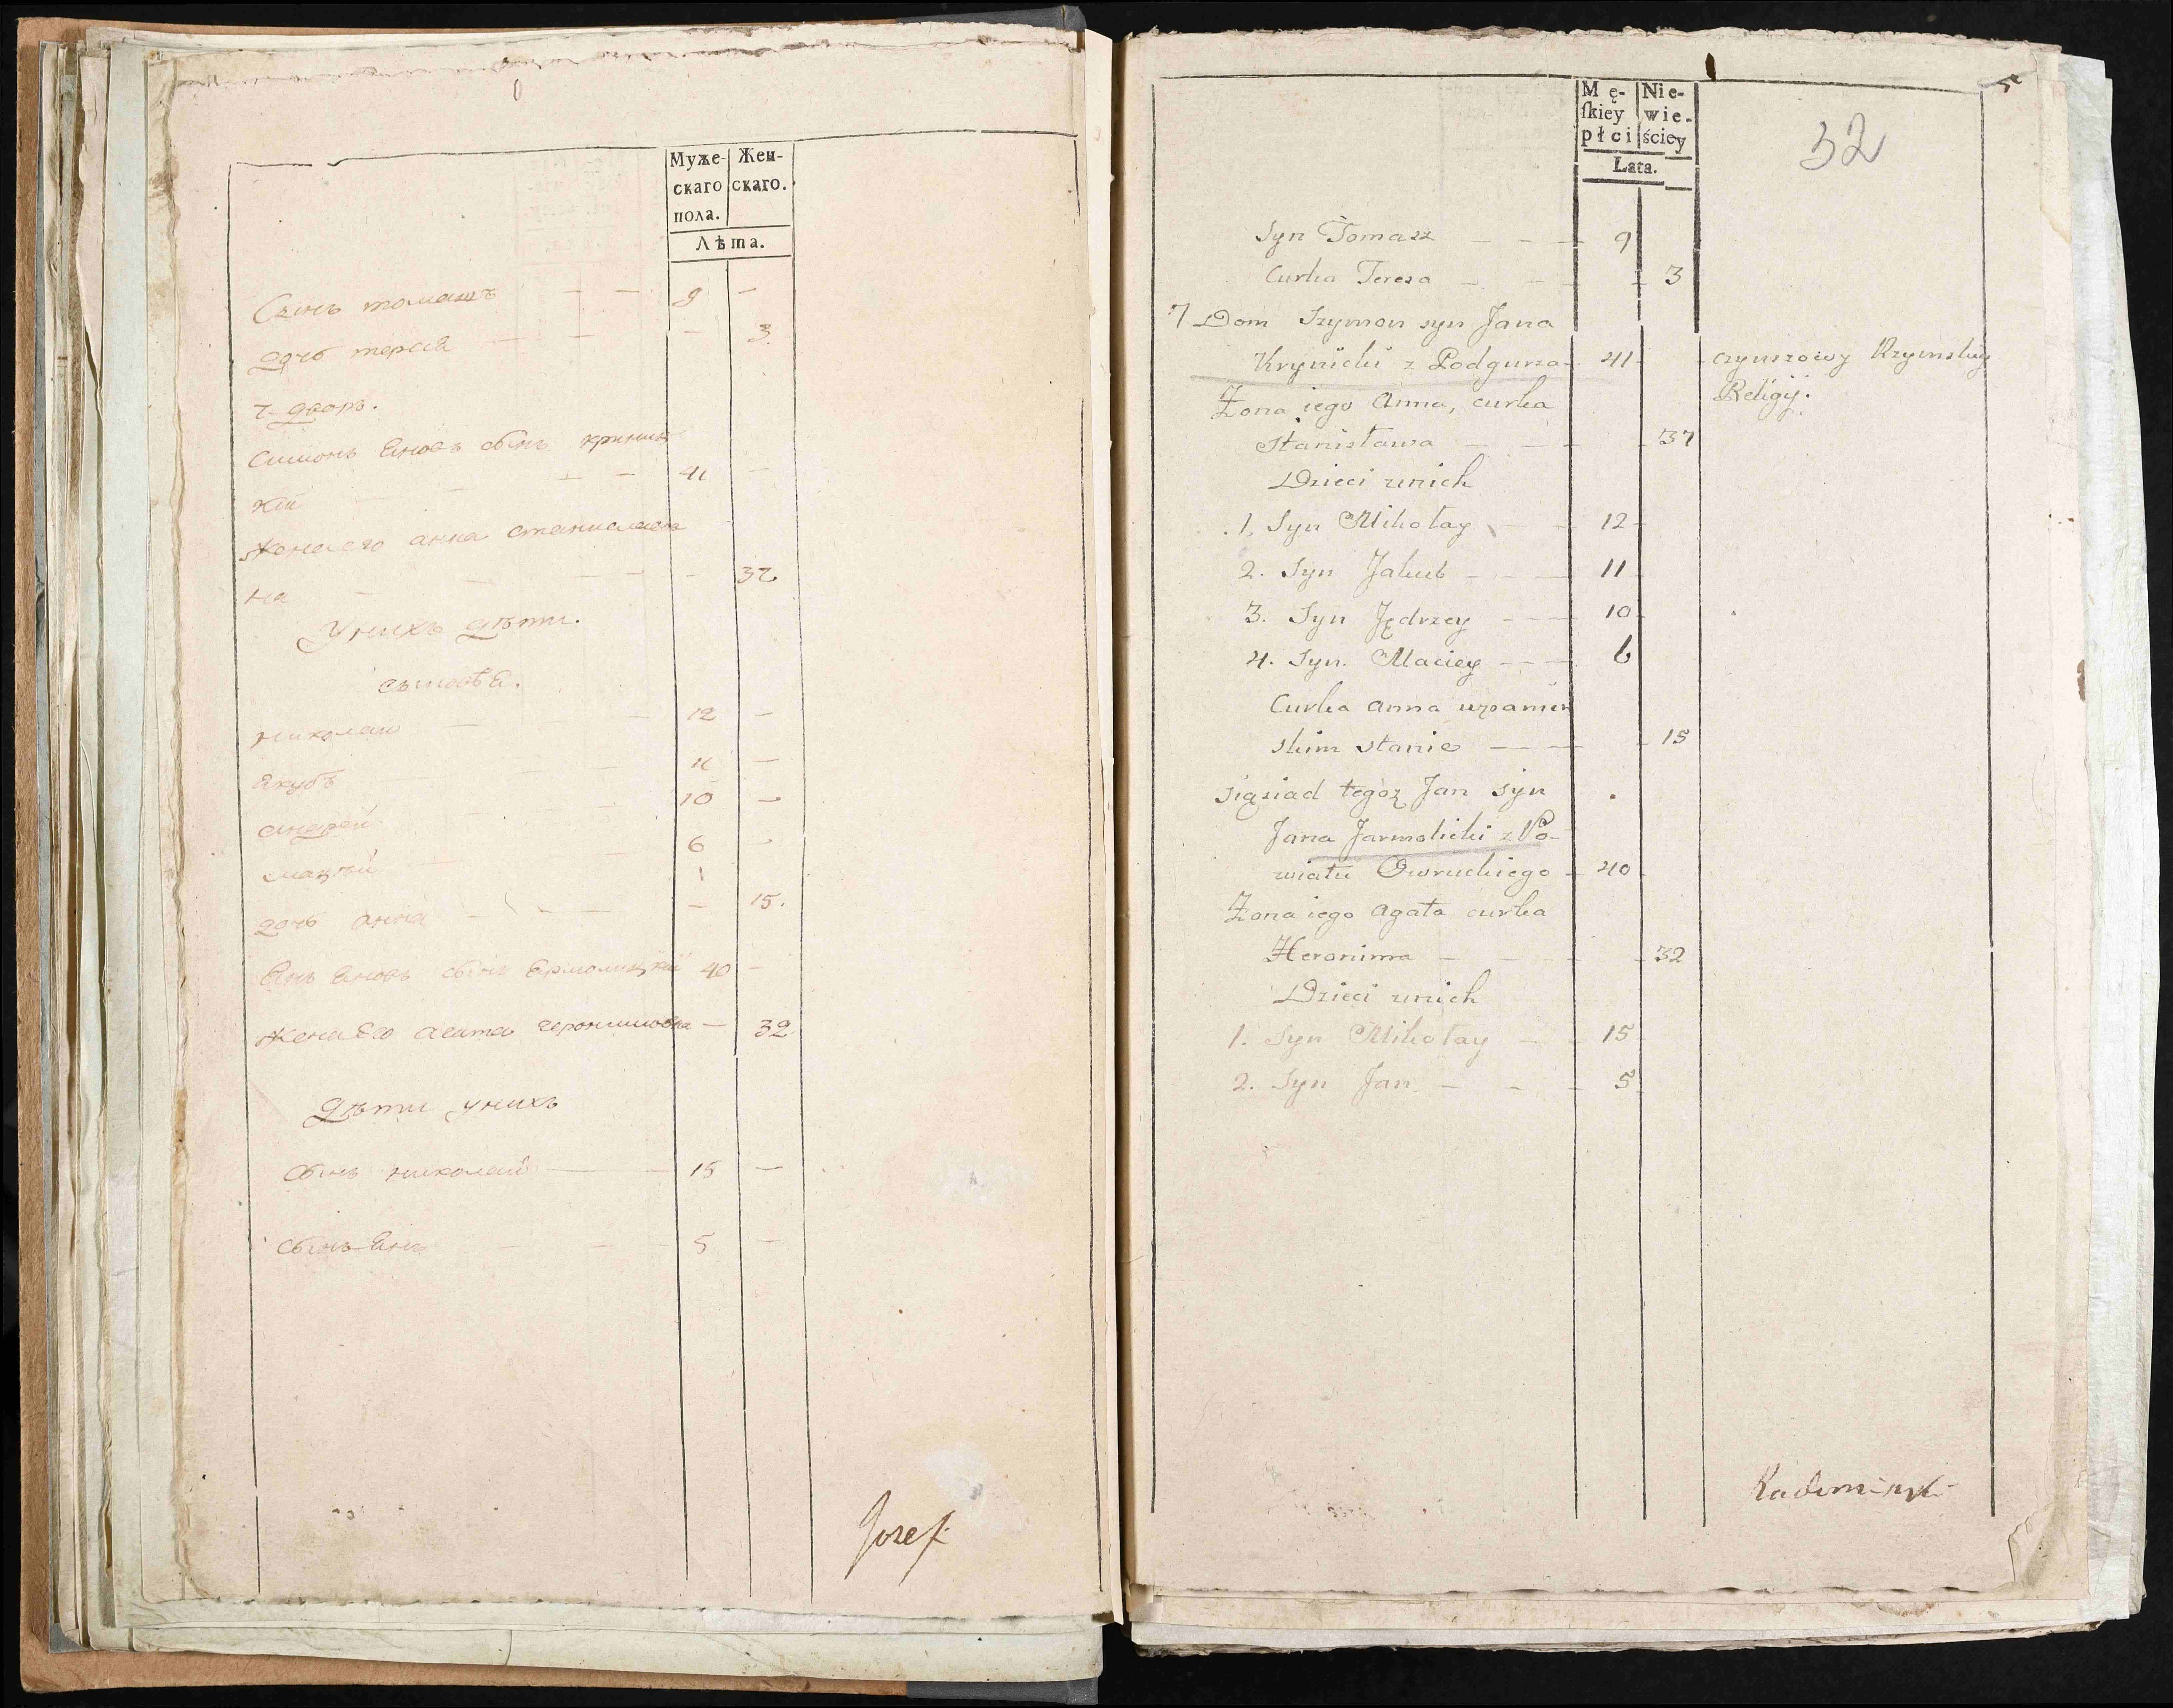 Муже- Жен-
скаго скаго.
пола.
Лѣта.
Сынъ томашъ — — 9 —
дочь терсiя — — — 3.
7 дворъ.
Симонъ Яновъ сынъ криниц
кiй — — — 41 —
жена его анна станиславов
на — — — — 37
У нихъ дѣти.
сыновья.
николай — — — 12 —
Якубъ — — — 11 —
андрей — — 10 —
мацѣй — — 6 -
дочь анна — — — — 15.
Янъ Яновъ сынъ Ермолицкiй 40 —
жена Его агата геронимовна — 32
Дѣти у нихъ
сынъ николай — — 15 —
сынъ Янъ — — 5 —
Jozef
5
Mę- Nie-
ſkiey wie-
płci ściey
Lata.
32
Syn Tomasz — — — 9
Curka Teresa — — — 3
7 Dom Szymon syn Jana
Krynicki z Podgurza - 41 - - czynszowy Rzymskiey
Żona iego Anna, curka Religij.
Stanisława — — — - 37
Dzieci unich
1. Syn Mikołay — — 12
2. Syn Jakub — — — 11
3. Syn Jędrzey — — — 10
4. Syn. Maciey — — — 6
Curka Anna wpanień
skim stanie — — — - 15
Siąsiad tegoż Jan syn
Jana Jarmolicki z Po-
wiatu Owruckiego - 40
Żona iego Agata curka
Heronima — — — - 32
Dzieci unich
1. Syn Mikołay — — 15
2. Syn Jan — — — 5
Radiminski